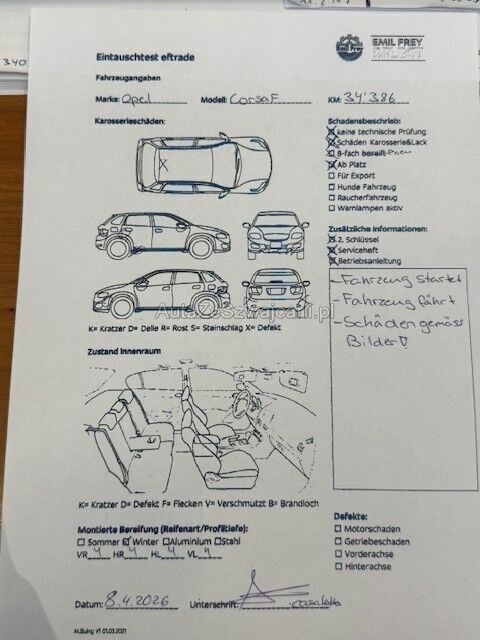 340
EMIL FREY
Eintauschtest eftrade
Fahrzeugangaben
Marke: Opel Modell: Corsa F KM: 34'386
Karosserieschäden:
X
Schadensbeschrieb:
keine technische Prüfung
Schäden Karosserie&Lack
8-fach bereift
Ab Platz
Für Export
Hunde Fahrzeug
Raucherfahrzeug
Warnlampen aktiv
Zusätzliche Informationen:
2. Schlüssel
Serviceheft
Betriebsanleitung
- Fahrzeug Startet
- Fahrzeug fährt
- Schäden gemäss
Bilder
AutaZeSzwajcarii.pl
K= Kratzer D= Delle R= Rost S= Steinschlag X= Defekt
Zustand Innenraum
K= Kratzer D= Defekt F= Flecken V= Verschmutzt B= Brandloch
Montierte Bereifung (Reifenart/Profiltiefe):
Sommer Winter Aluminium Stahl
VR 4 HR 4 HL 4 VL 4
Defekte:
Motorschaden
Getriebeschaden
Vorderachse
Hinterachse
Datum: 8.4.2026 Unterschrift:
M.Buing V1 01.03.2021